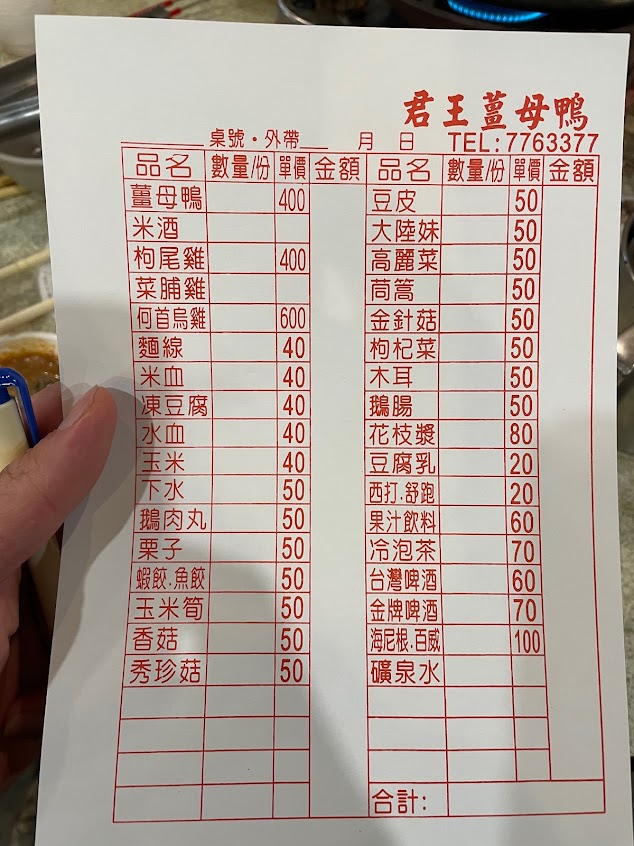 君王薑母鴨
桌號·外帶 月 日 TEL:7763377
品名 數量/份 單價 金額 品名 數量/份 單價 金額
薑母鴨 400 豆皮 50
米酒 大陸妹 50
枸尾雞 400 高麗菜 50
菜脯雞 茼蒿 50
何首烏雞 600 金針菇 50
麵線 40 枸杞菜 50
米血 40 木耳 50
凍豆腐 40 鵝腸 50
水血 40 花枝漿 80
玉米 40 豆腐乳 20
下水 50 西打.舒跑 20
鵝肉丸 50 果汁飲料 60
栗子 50 冷泡茶 70
蝦餃.魚餃 50 台灣啤酒 60
玉米筍 50 金牌啤酒 70
香菇 50 海尼根.百威 100
秀珍菇 50 礦泉水
合計: